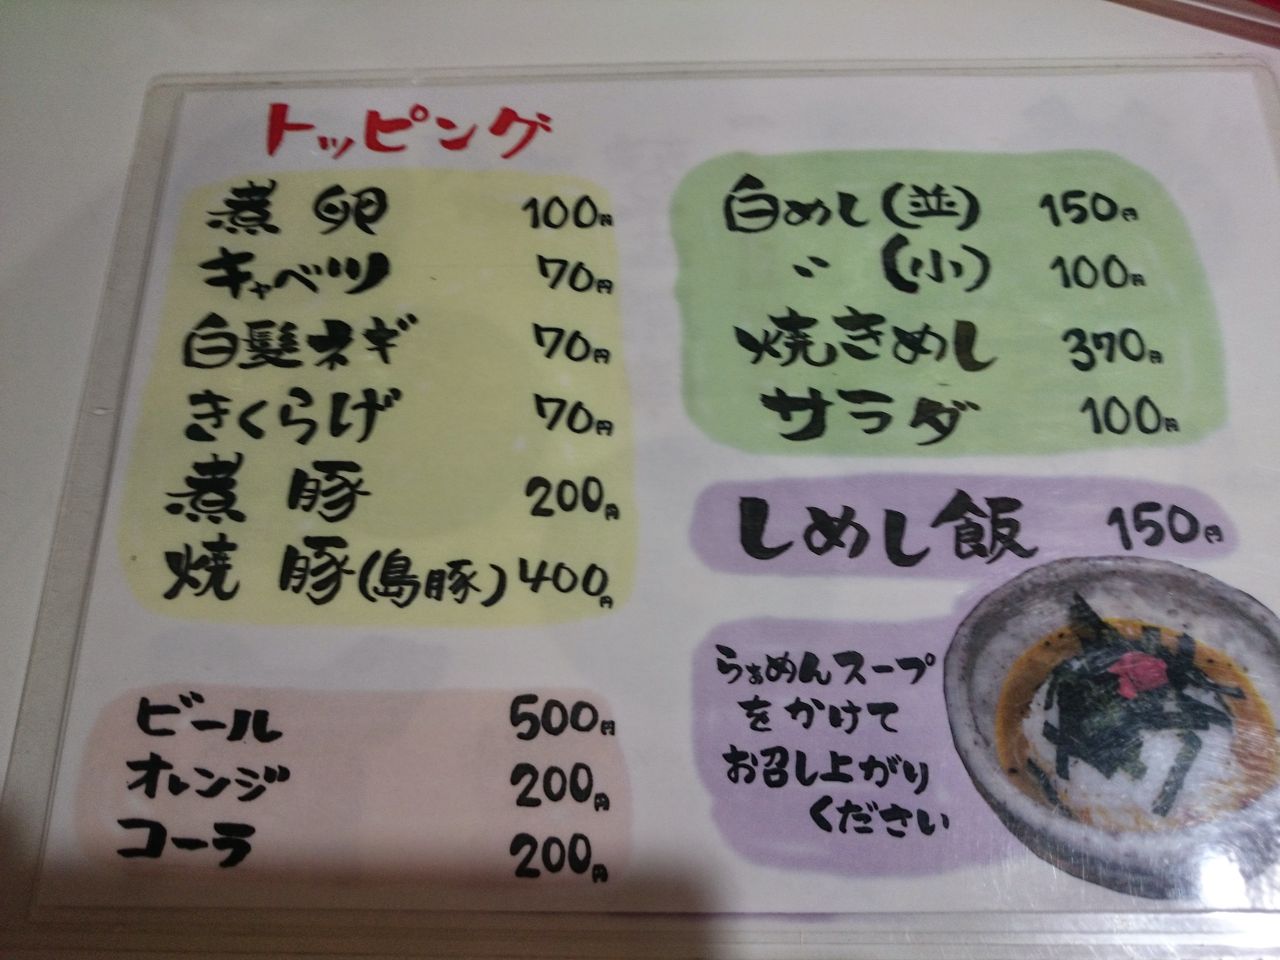 トッピング
煮卵 100円
キャベツ 70円
白髪ネギ 70円
きくらげ 70円
煮豚 200円
焼豚(島豚) 400円
ビール 500円
オレンジ 200円
コーラ 200円
白めし(並) 150円
〃 (小) 100円
焼きめし 370円
サラダ 100円
しめし飯 150円
らぁめんスープ
をかけて
お召し上がり
ください